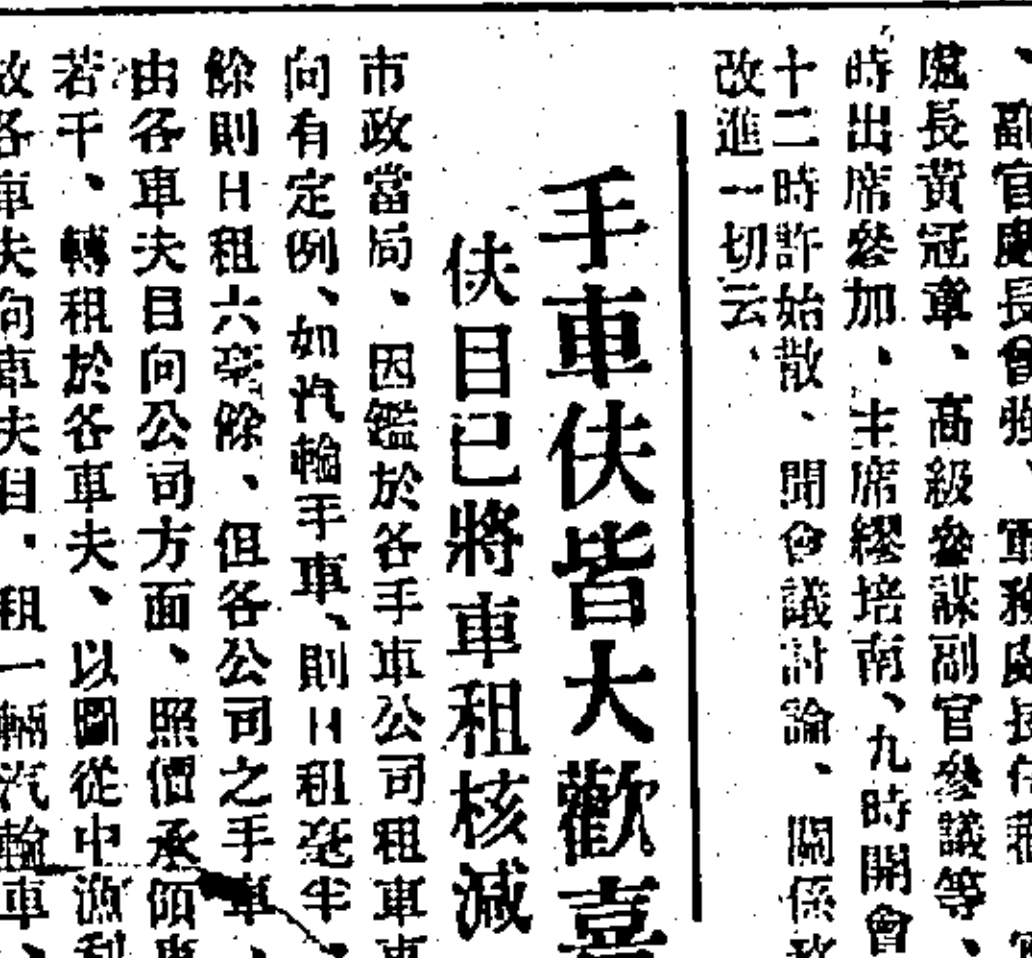 、副官處長曾強、軍務處長
處長黃冠章、高級參謀副官參議等、
時出席參加、主席繆培南、九時開會
十二時許始散、聞會議討論、關係政
改進一切云、
手車伕皆大歡喜
伕目已將車租核減
市政當局、因鑑於各手車公司租車車
向有定例、如汽輪手車、則日租毫半、
餘則日租六毫餘、但各公司之手車、
由各車夫目向公司方面、照價承領車
若干、轉租於各車夫、以圖從中漁利
故各車夫向車夫目、租一輛汽輪車、